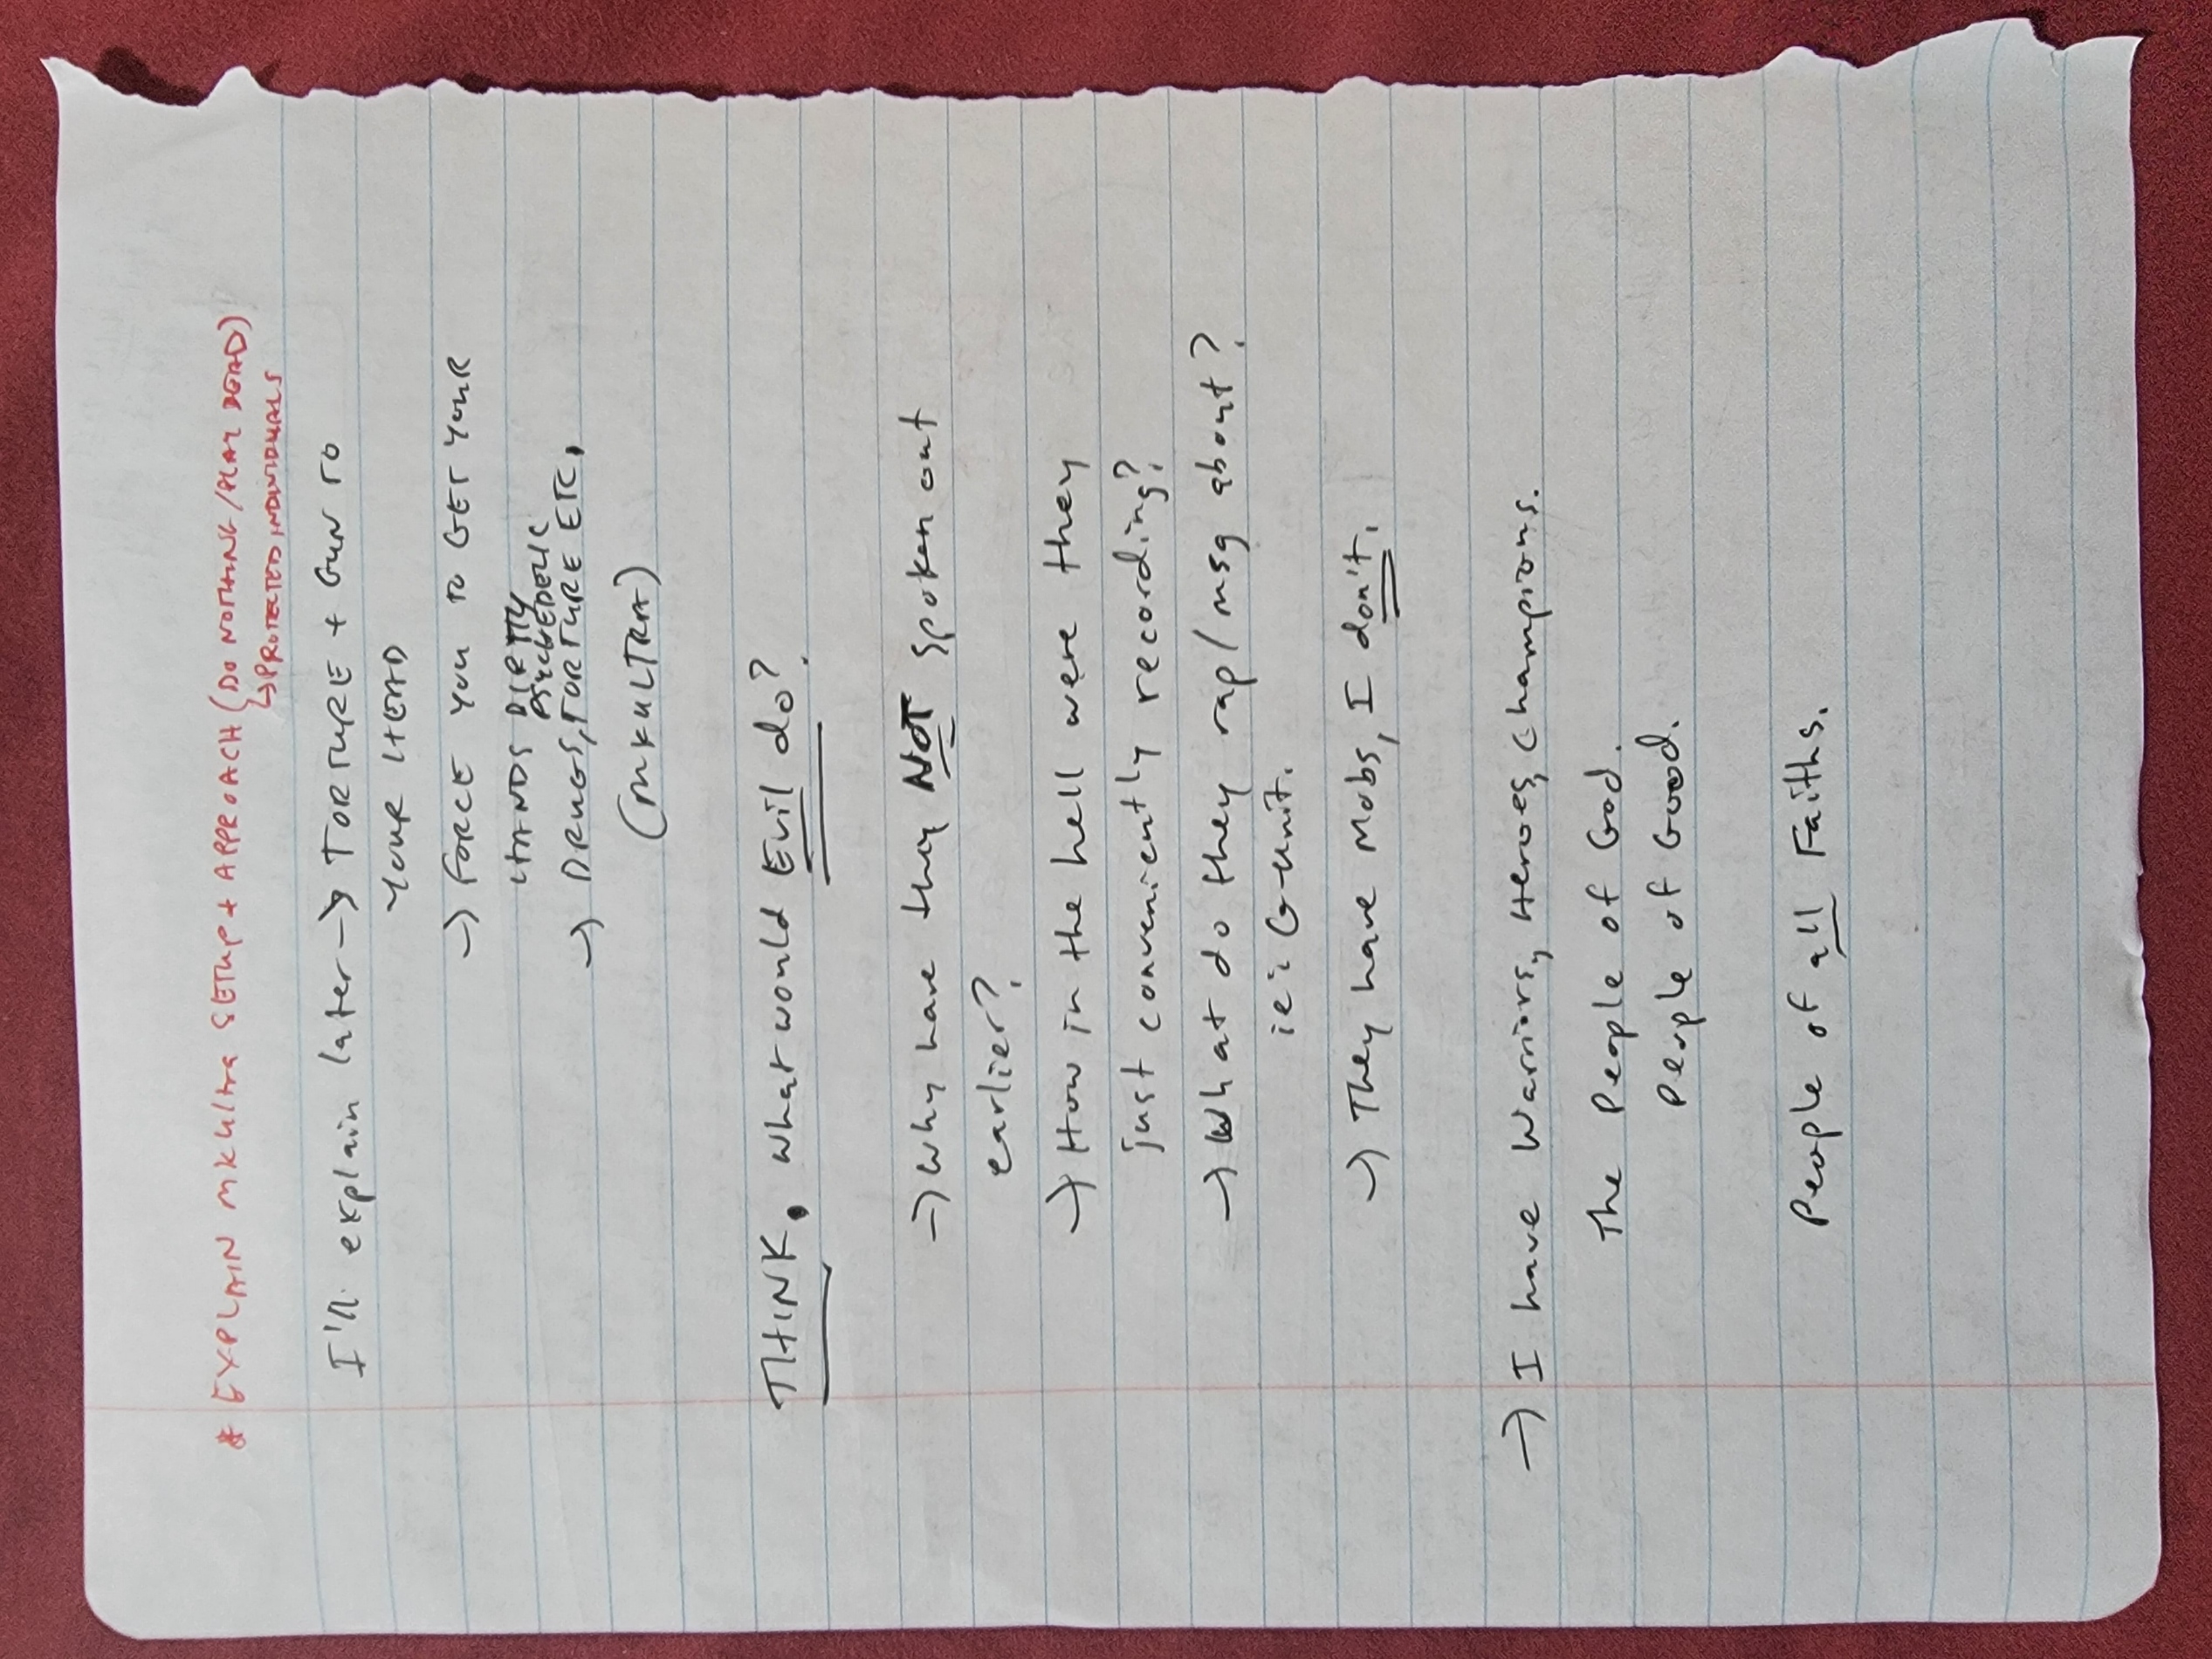 * EXPLAIN MKUltra SETUP + APPROACH (DO NOTHING/PLAY DEAD)
↳PROTECTED INDIVIDUALS
I'll explain later → TORTURE + GUN TO
YOUR HEAD
→ FORCE YOU TO GET YOUR
HANDS DIRTTY
PSYCHEDELIC
→ DRUGS, TORTURE ETC.
(MKULTRA)
THINK. What would Evil do?
→ Why have they NOT spoken out
earlier?
→ How in the hell were they
just conveniently recording?
→ What do they rap/msg about?
ie: G-Unit.
→ They have Mobs, I don't.
→ I have Warriors, Heroes, Champions.
The People of God.
People of Good.
People of all Faiths.